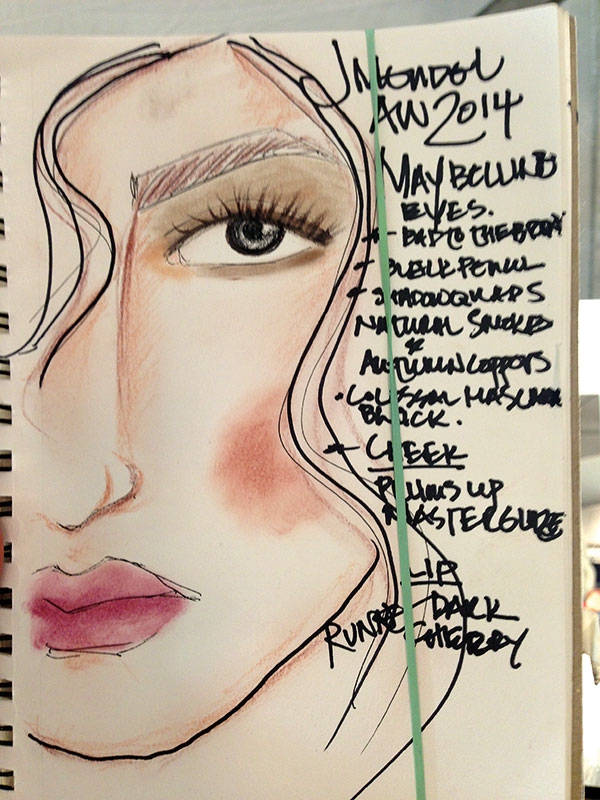 J MENDEL
AW 2014
MAYBELLINE
EYES.
- BAD TO THE BRONZ
- BLACK PENCIL
- SHADOW QUADS
NATURAL SMOKES
&
AUTUMN COPPERS
• COLOSSAL MASCARA
BLACK.
- CHEEK
UP
MASTERGLAZE
LIP
DARK
CHERRY